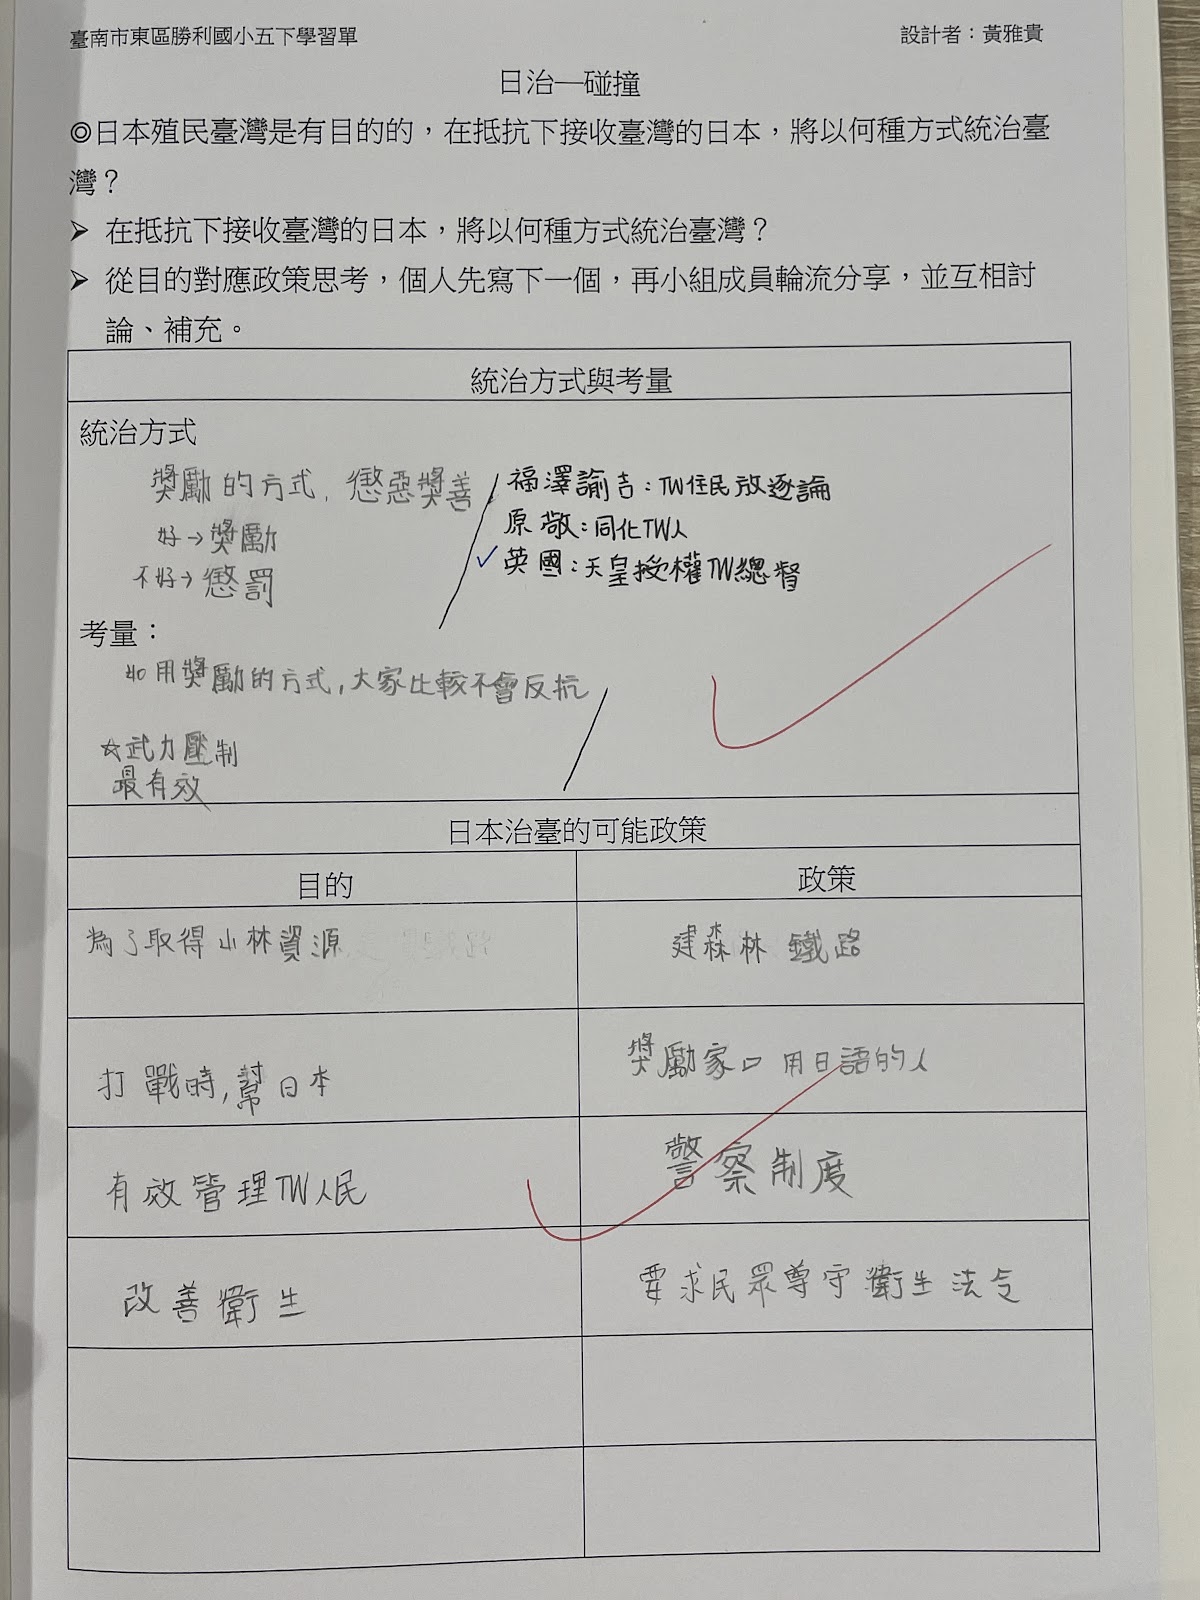 臺南市東區勝利國小五下學習單
設計者：黃雅貴
日治—碰撞
◎日本殖民臺灣是有目的的，在抵抗下接收臺灣的日本，將以何種方式統治臺
灣？
➤ 在抵抗下接收臺灣的日本，將以何種方式統治臺灣？
➤ 從目的對應政策思考，個人先寫下一個，再小組成員輪流分享，並互相討
論、補充。
統治方式與考量
統治方式
獎勵的方式，懲惡獎善
好→獎勵
不好→懲罰
福澤諭吉：TW住民放逐論
原敬：同化TW人
✓英國：天皇授權TW總督
考量：
如用獎勵的方式，大家比較不會反抗
☆武力壓制
最有效
日本治臺的可能政策
目的
政策
為了取得山林資源
建森林鐵路
打戰時，幫日本
獎勵家口用日語的人
有效管理TW人民
警察制度
改善衛生
要求民眾尊守衛生法令